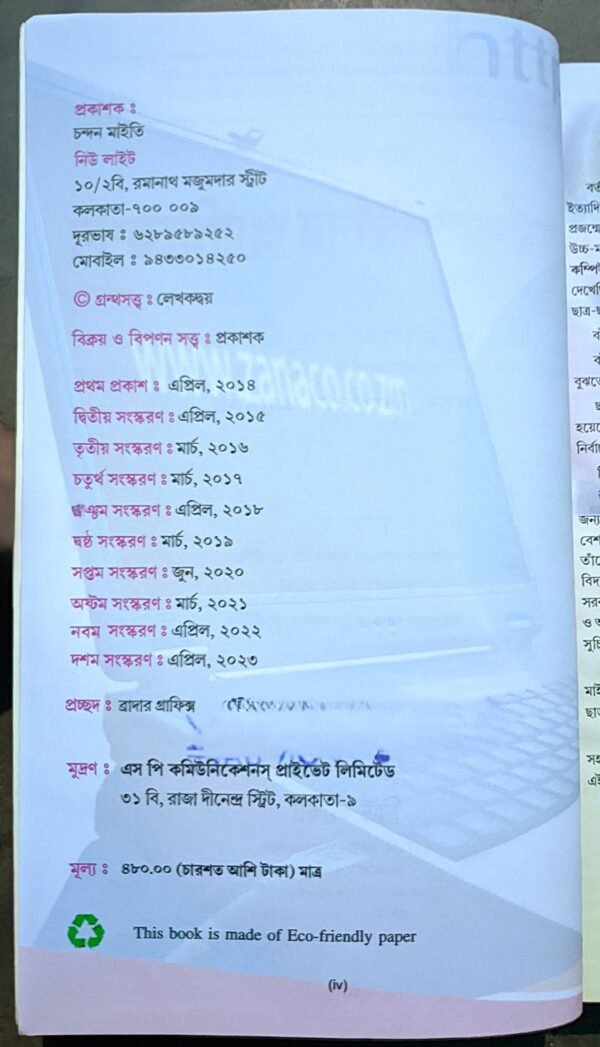 প্রকাশক ঃ
চন্দন মাইতি
নিউ লাইট
১০/২বি, রমানাথ মজুমদার স্ট্রীট
কলকাতা-৭০০ ০০৯
দূরভাষ ঃ ৬২৮৯৫৮৯২৫২
মোবাইল ঃ ৯৪৩৩০১৪২৫০
© গ্রন্থসত্ত্ব ঃ লেখকদ্বয়
বিক্রয় ও বিপণন সত্ত্ব ঃ প্রকাশক
প্রথম প্রকাশ ঃ এপ্রিল, ২০১৪
দ্বিতীয় সংস্করণ ঃ এপ্রিল, ২০১৫
তৃতীয় সংস্করণ ঃ মার্চ, ২০১৬
চতুর্থ সংস্করণ ঃ মার্চ, ২০১৭
সংস্করণ ঃ এপ্রিল, ২০১৮
ষষ্ঠ সংস্করণ ঃ মার্চ, ২০১৯
সপ্তম সংস্করণ ঃ জুন, ২০২০
অষ্টম সংস্করণ ঃ মার্চ, ২০২১
নবম সংস্করণ ঃ এপ্রিল, ২০২২
দশম সংস্করণ ঃ এপ্রিল, ২০২৩
প্রচ্ছদ ঃ ব্রাদার গ্রাফিক্স
মুদ্রণ ঃ এস পি কমিউনিকেশনস্ প্রাইভেট লিমিটেড
৩১ বি, রাজা দীনেন্দ্র স্ট্রিট, কলকাতা-৯
মূল্য ঃ ৪৮০.০০ (চারশত আশি টাকা) মাত্র
This book is made of Eco-friendly paper
(iv)